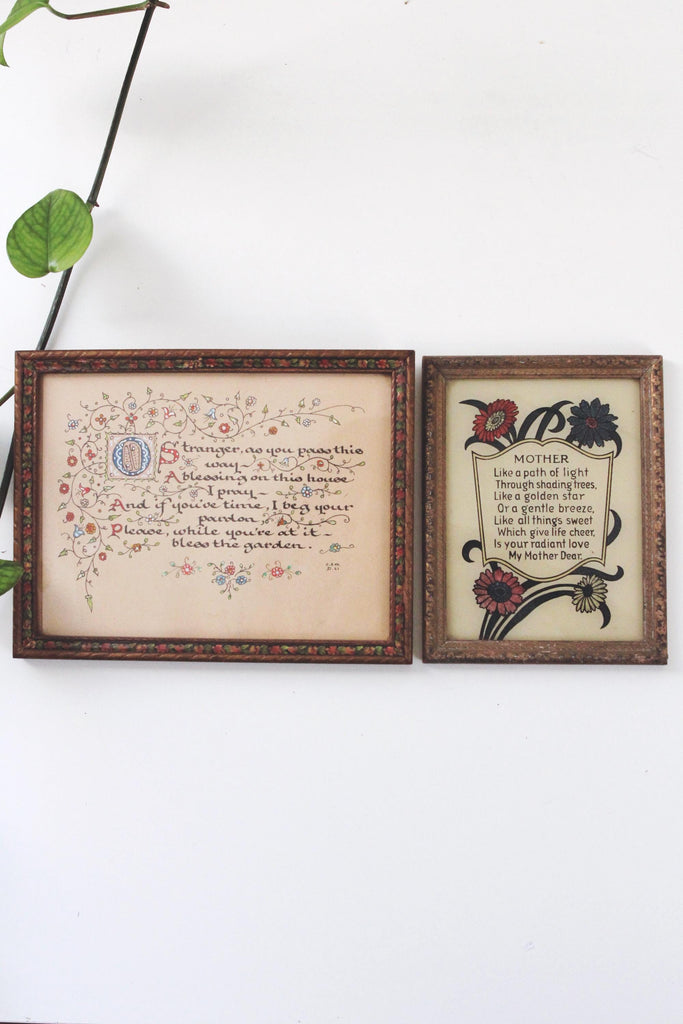 O Stranger, as you pass this
way~
A blessing on this house
I pray~
And if you've time, I beg your
pardon,
Please, while you're at it~
bless the garden.
MOTHER
Like a path of light
Through shading trees,
Like a golden star
Or a gentle breeze,
Like all things sweet
Which give life cheer,
Is your radiant love
My Mother Dear.